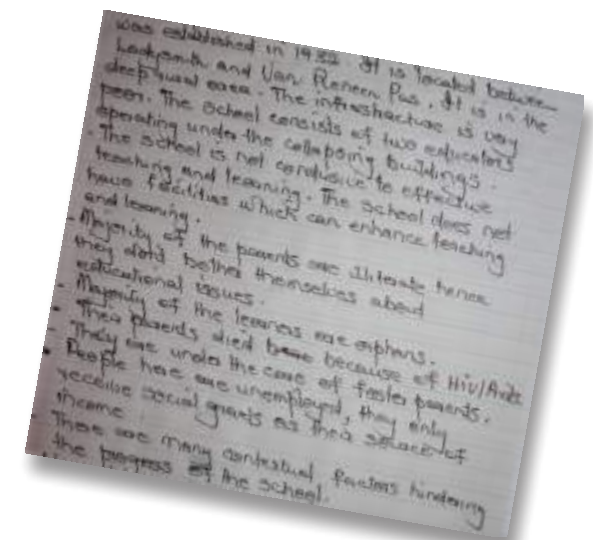 was established in 1932. It is located between
Ladysmith and Van Reenen Pas. It is in the
deep rural area. The infrastructure is very
poor. The School consists of two educators
operating under the collapsing buildings.
- The school is not conducive to effective
teaching and learning. The school does not
have facilities which can enhance teaching
and learning.
- Majority of the parents are illiterate hence
they don't bother themselves about
educational issues.
- Majority of the learners are orphans.
- Their parents died because of HIV/Aids
- They are under the care of foster parents.
- People here are unemployed, they only
receive social grants as their source of
income
- There are many contextual, factors hindering
the progress of the school.